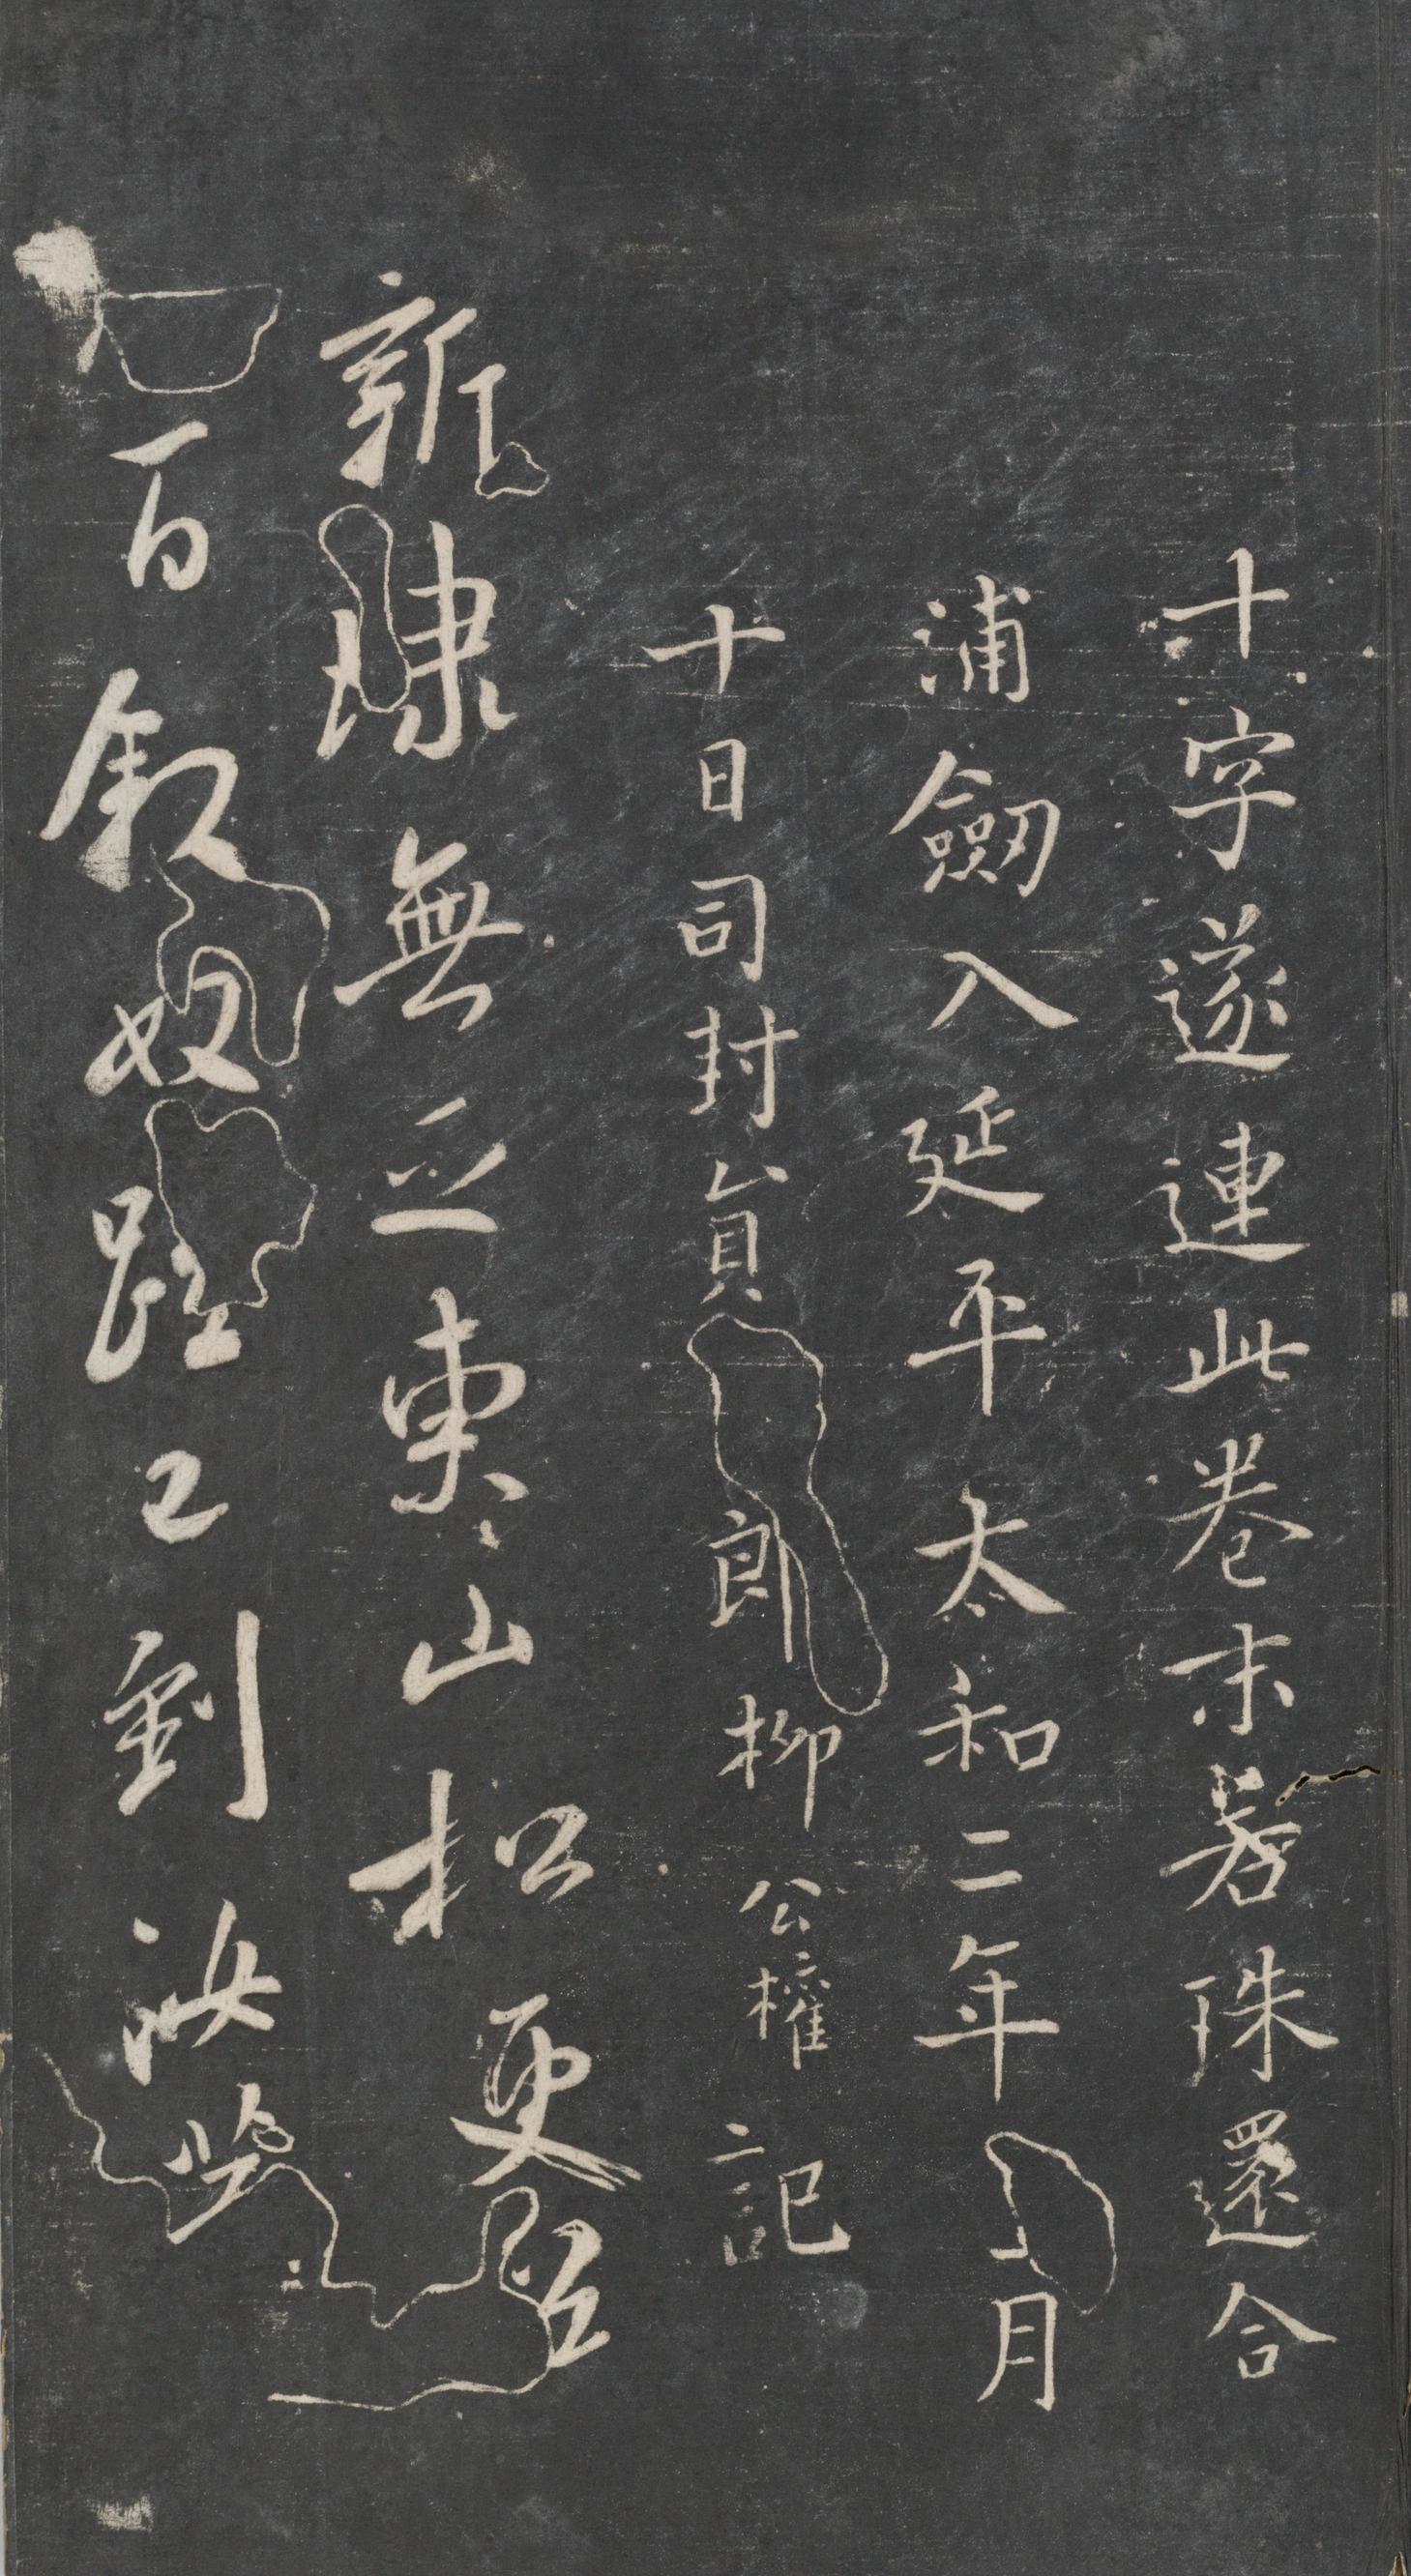 十字遂連此卷末若珠還合
浦劒入延平太和二年月
十日司封員郎柳公權記
新埭無乏東山松更
百敘奴已到汝